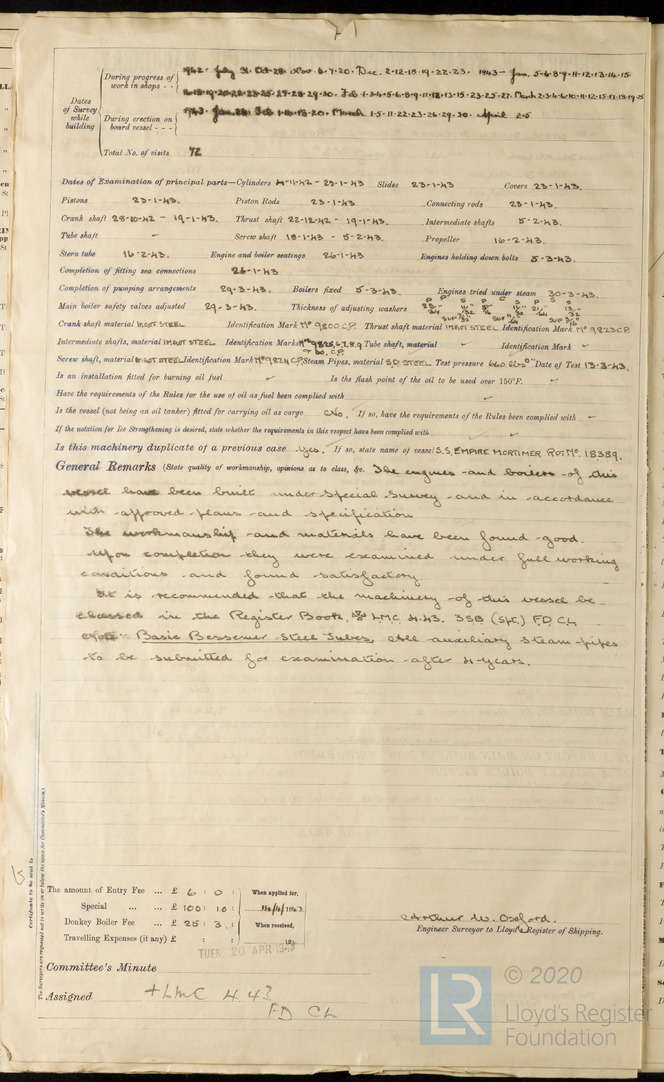 71
Dates of Survey while building
During progress of work in shops - - 1942 · July 31 · Oct · 28 · Nov 6 · 7 · 20 · Dec. 2 · 12 · 15 · 19 · 22 · 23 · 1943 - Jan. 5 · 6 · 8 · 9 · 11 · 12 · 13 · 14 · 15
27 · 28 · 29 · 30 · Feb 1 · 3 · 4 · 5 · 6 · 8 · 9 · 11 · 12 · 13 · 15 · 23 · 25 · 27 · March 2 · 3 · 4 · 6 · 10 · 11 · 12 · 15 · 17 · 18 · 19
During erection on board vessel - - - 1943 · Jan. 26 · Feb 1 · 16 · 18 · 20 · March 1 · 5 · 11 · 22 · 23 · 26 · 29 · 30 · April 2 · 5
Total No. of visits 72
Dates of Examination of principal parts—Cylinders 4-11-42 - 23-1-43 Slides 23-1-43 Covers 23-1-43.
Pistons 23-1-43. Piston Rods 23-1-43. Connecting rods 23-1-43.
Crank shaft 28-10-42 - 19-1-43. Thrust shaft 22-12-42 - 19-1-43. Intermediate shafts 5-2-43.
Tube shaft - Screw shaft 18-1-43 - 5-2-43. Propeller 16-2-43.
Stern tube 16-2-43. Engine and boiler seatings 26-1-43 Engines holding down bolts 5-3-43.
Completion of fitting sea connections 26-1-43
Completion of pumping arrangements 29-3-43. Boilers fixed 5-3-43. Engines tried under steam 30-3-43.
Main boiler safety valves adjusted 29-3-43. Thickness of adjusting washers
Crank shaft material INGOT STEEL Identification Mark No 9800 C.P. Thrust shaft material INGOT STEEL Identification Mark No 9823 C.P.
Intermediate shafts, material INGOT STEEL Identification Marks No 9825,6,7,8,9 Tube shaft, material - Identification Mark -
Screw shaft, material INGOT STEEL Identification Mark No 9824 C.P. Steam Pipes, material S.D. STEEL Test pressure 660 lbs □" Date of Test 13-3-43.
Is an installation fitted for burning oil fuel - Is the flash point of the oil to be used over 150°F. -
Have the requirements of the Rules for the use of oil as fuel been complied with -
Is the vessel (not being an oil tanker) fitted for carrying oil as cargo No. If so, have the requirements of the Rules been complied with -
If the notation for Ice Strengthening is desired, state whether the requirements in this respect have been complied with -
Is this machinery duplicate of a previous case Yes. If so, state name of vessel S.S. EMPIRE MORTIMER RPT No. 18389.
General Remarks (State quality of workmanship, opinions as to class, &c. The engines and boilers of this
vessel have been built under Special Survey and in accordance
with approved plans and specification
The workmanship and materials have been found good.
Upon completion they were examined under full working
conditions and found satisfactory.
It is recommended that the machinery of this vessel be
classed in the Register Book, LMC 4.43. 3SB (Spt.) FD CL
Note:- Basic Bessemer Steel Tubes, All auxiliary steam pipes
to be submitted for examination after 4 years.
Certificate to be sent to
(The Surveyors are requested not to write on or below the space for Committee's Minute.)
The amount of Entry Fee ... £ 6 : 0 : When applied for,
Special ... ... £ 100 : 10 : 1943
Donkey Boiler Fee ... £ 25 : 3 : When received,
Travelling Expenses (if any) £ : : 19
Arthur W. Oxford.
Engineer Surveyor to Lloyd's Register of Shipping.
TUES. 20 APR 1943
Committee's Minute
Assigned +LMC 4.43
FD CL
LR
© 2020
Lloyd's Register
Foundation